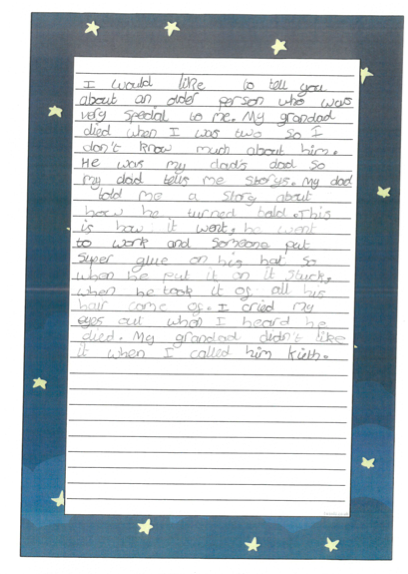 I would like to tell you
about an older person who was
very special to me. My grandad
died when I was two so I
don't know much about him.
He was my dad's dad so
my dad tells me storys. My dad
told me a story about
how he turned bald. This
is how it went, he went
to work and someone put
super glue on his hat so
when he put it on it stuck,
when he took it of all his
hair come of. I cried my
eyes out when I heard he
died. My grandad didn't like
it when I called him Kieth.